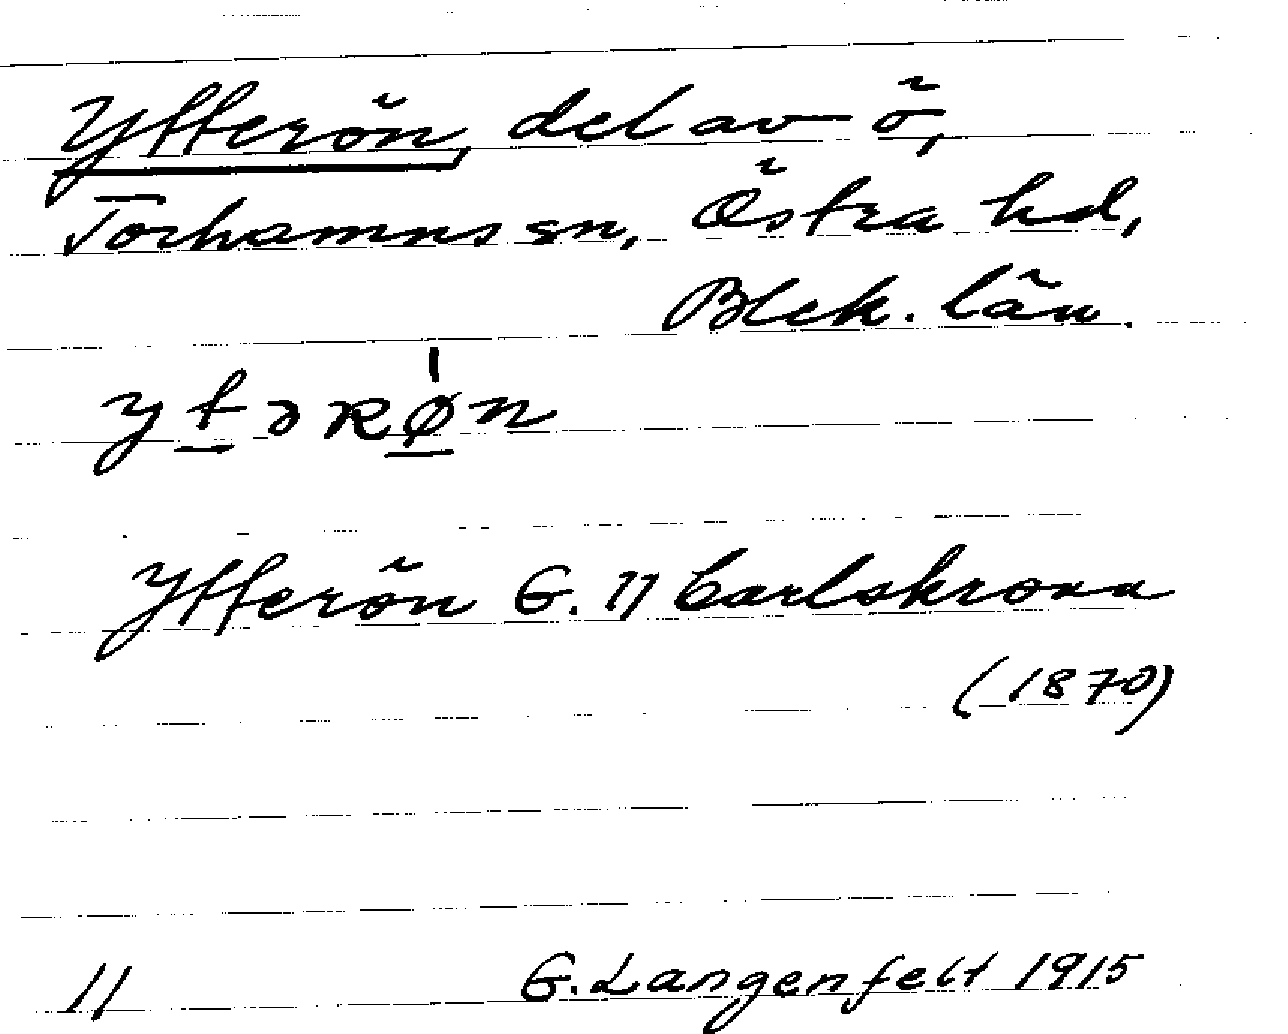 Yfferön, del av ö,
Torhamns sn, Östra hd,
Blek. län.
yfəRø̍n
Yfferön G. 11 Carlskrona
(1870)
11 G. Langenfelt 1915